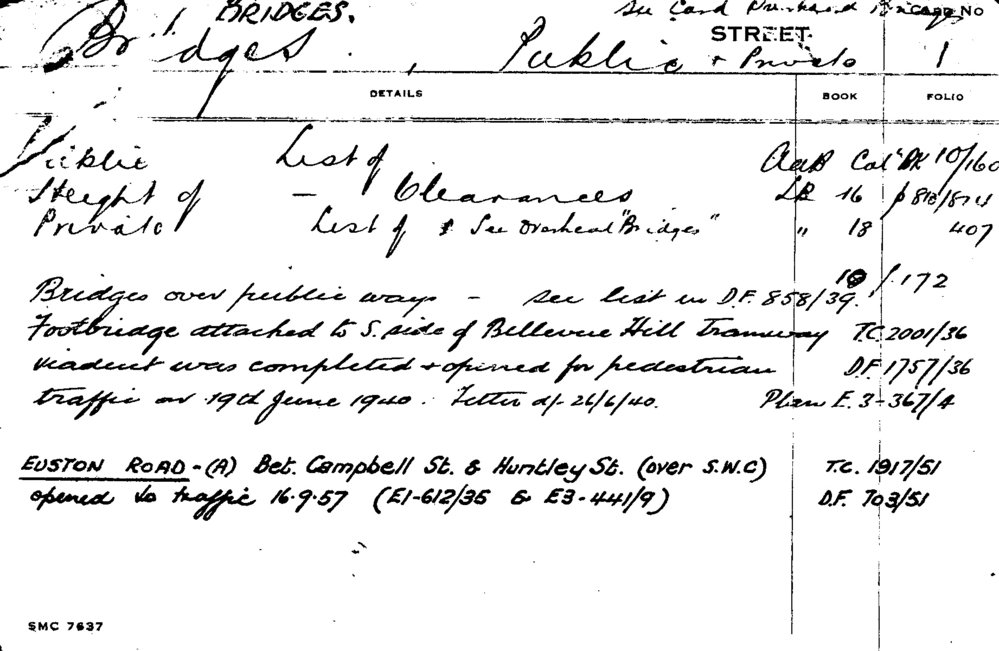 BRIDGES.
See Card Overhead Bridges
CARD No
STREET
Bridges, Public + Private 1
DETAILS BOOK FOLIO
Public List of 10/160
Height of — Clearances LB 16
Private List of See Overhead "Bridges" " 18 407
10/172
Bridges over public ways - see list in D.F. 858/39.
Footbridge attached to S. side of Bellevue Hill Tramway T.C. 2001/36
viaduct was completed + opened for pedestrian D.F. 1757/36
traffic on 19th June 1940. Letter d/- 26/6/40. Plan E. 3-367/4
EUSTON ROAD - (A) Bet. Campbell St. & Huntley St. (over S.W.C) T.C. 1917/51
opened to traffic 16.9.57 (E1-612/35 & E3-441/9) D.F. 703/51
SMC 7637